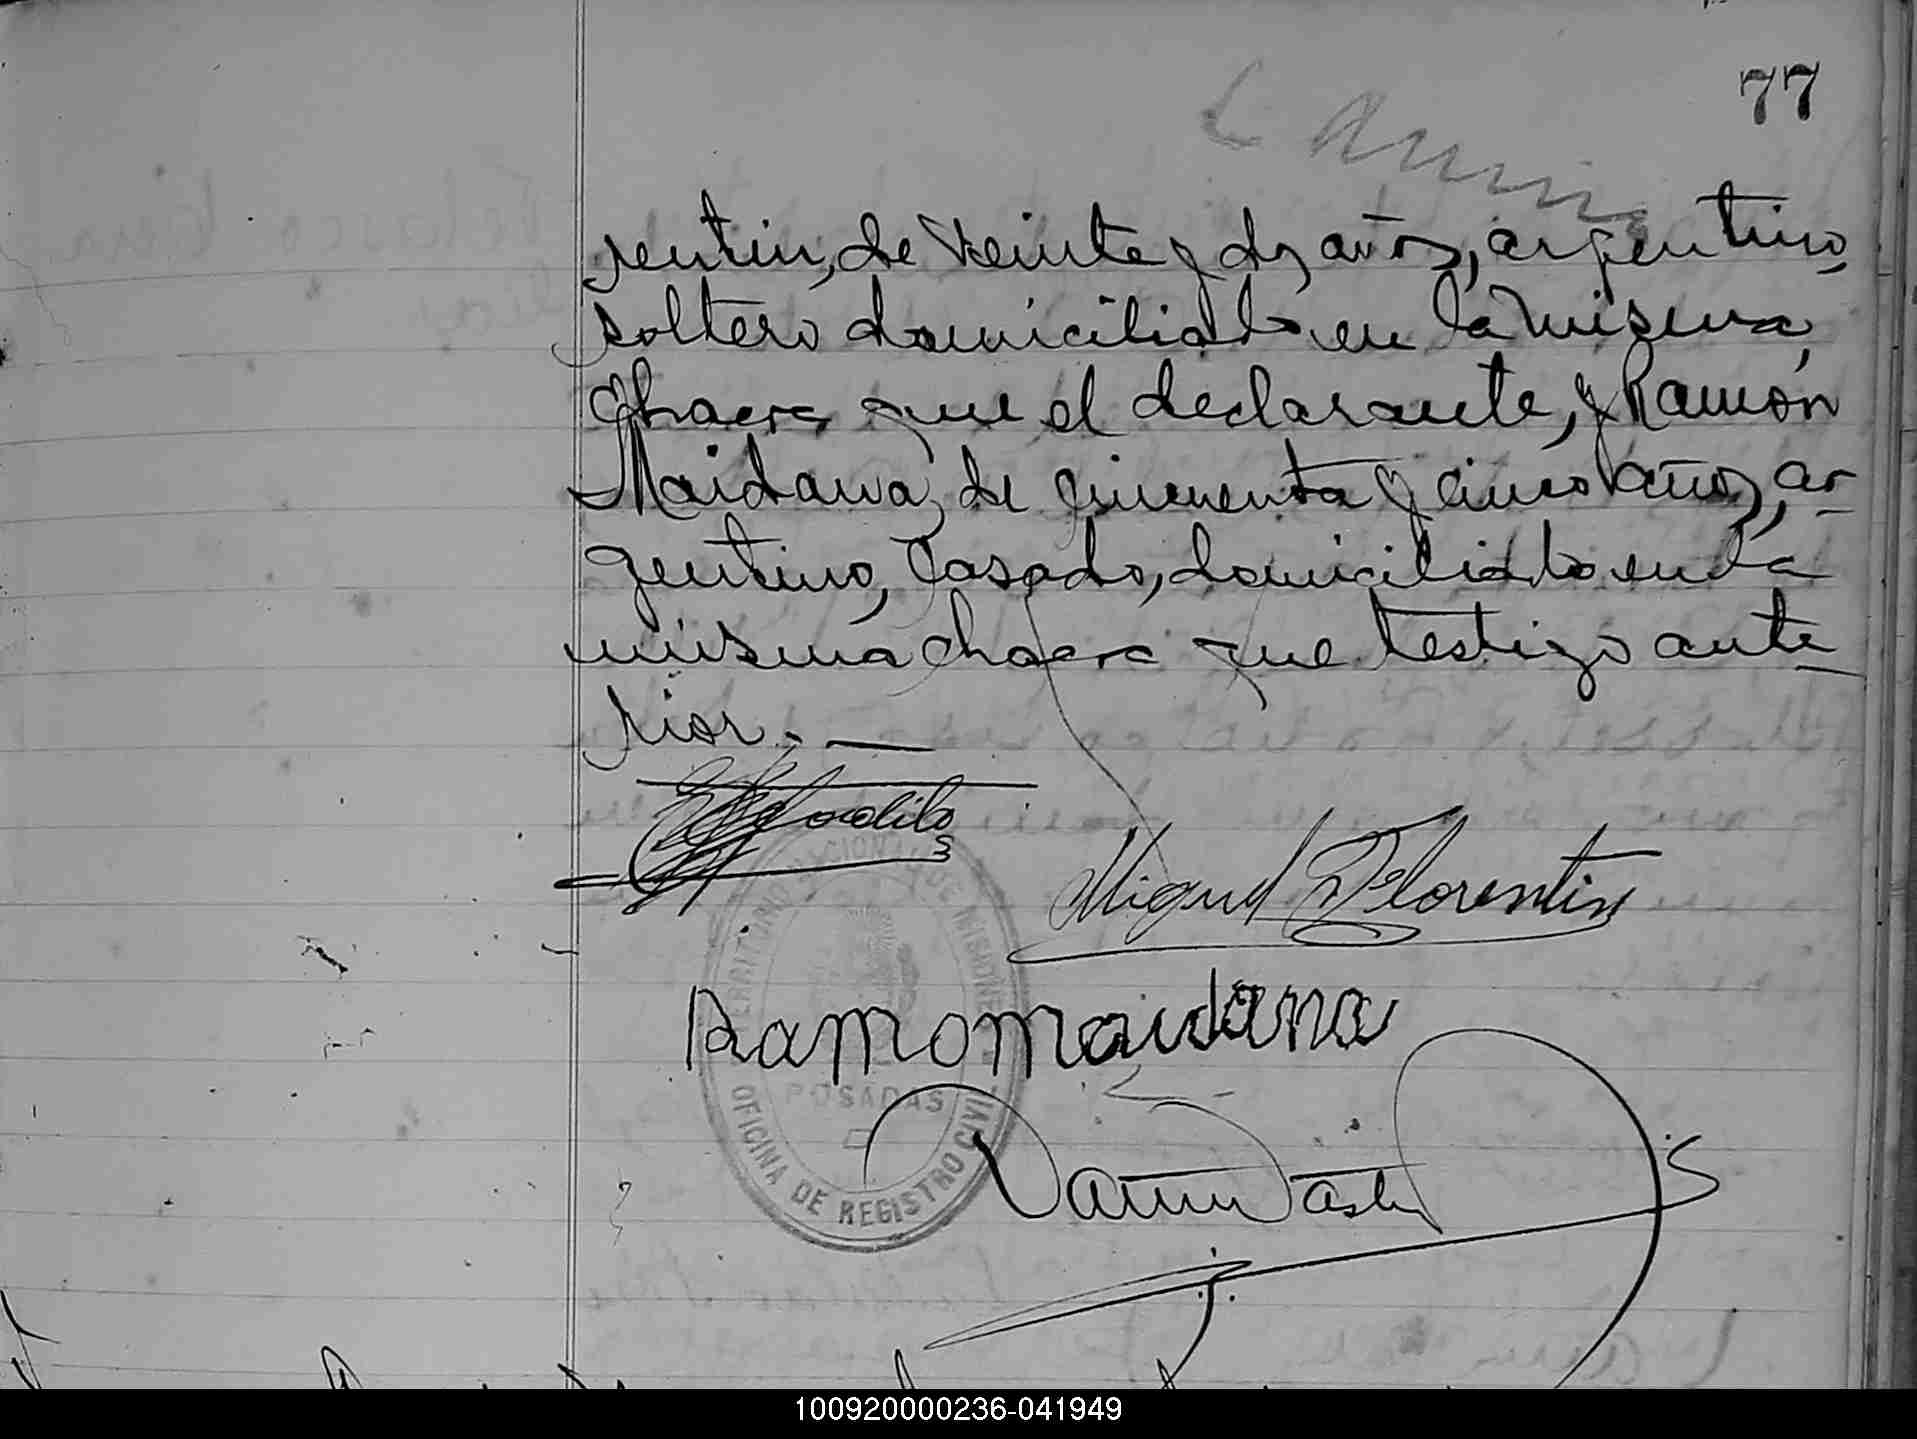 77
rentin, de veinte y dos años, argentino,
soltero domiciliado en la misma
chacra que el declarante, y Ramón
Maidana, de cincuenta y cinco años, ar-
gentino, casado, domiciliado en la
misma chacra que testigo ante-
rior.
Miguel Florentin
Ramo maidana
TERRITORIO NACIONAL DE MISIONES
POSADAS
OFICINA DE REGISTRO CIVIL
100920000236-041949